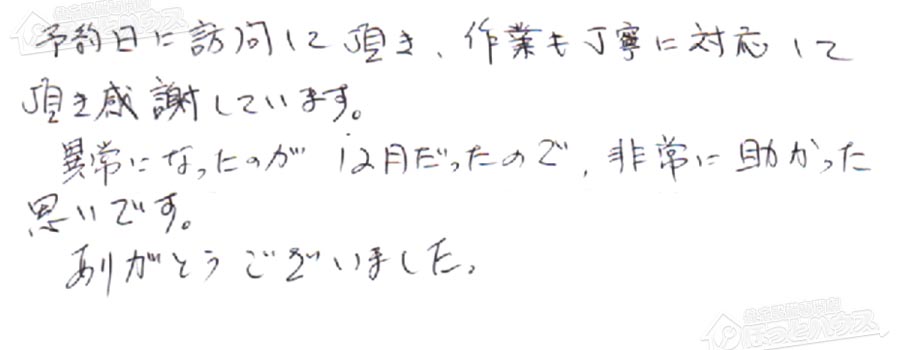 予約日に訪問して頂き、作業も丁寧に対応して
頂き感謝しています。
異常になったのが12月だったので、非常に助かった
思いです。
ありがとうございました。
ほっとハウス